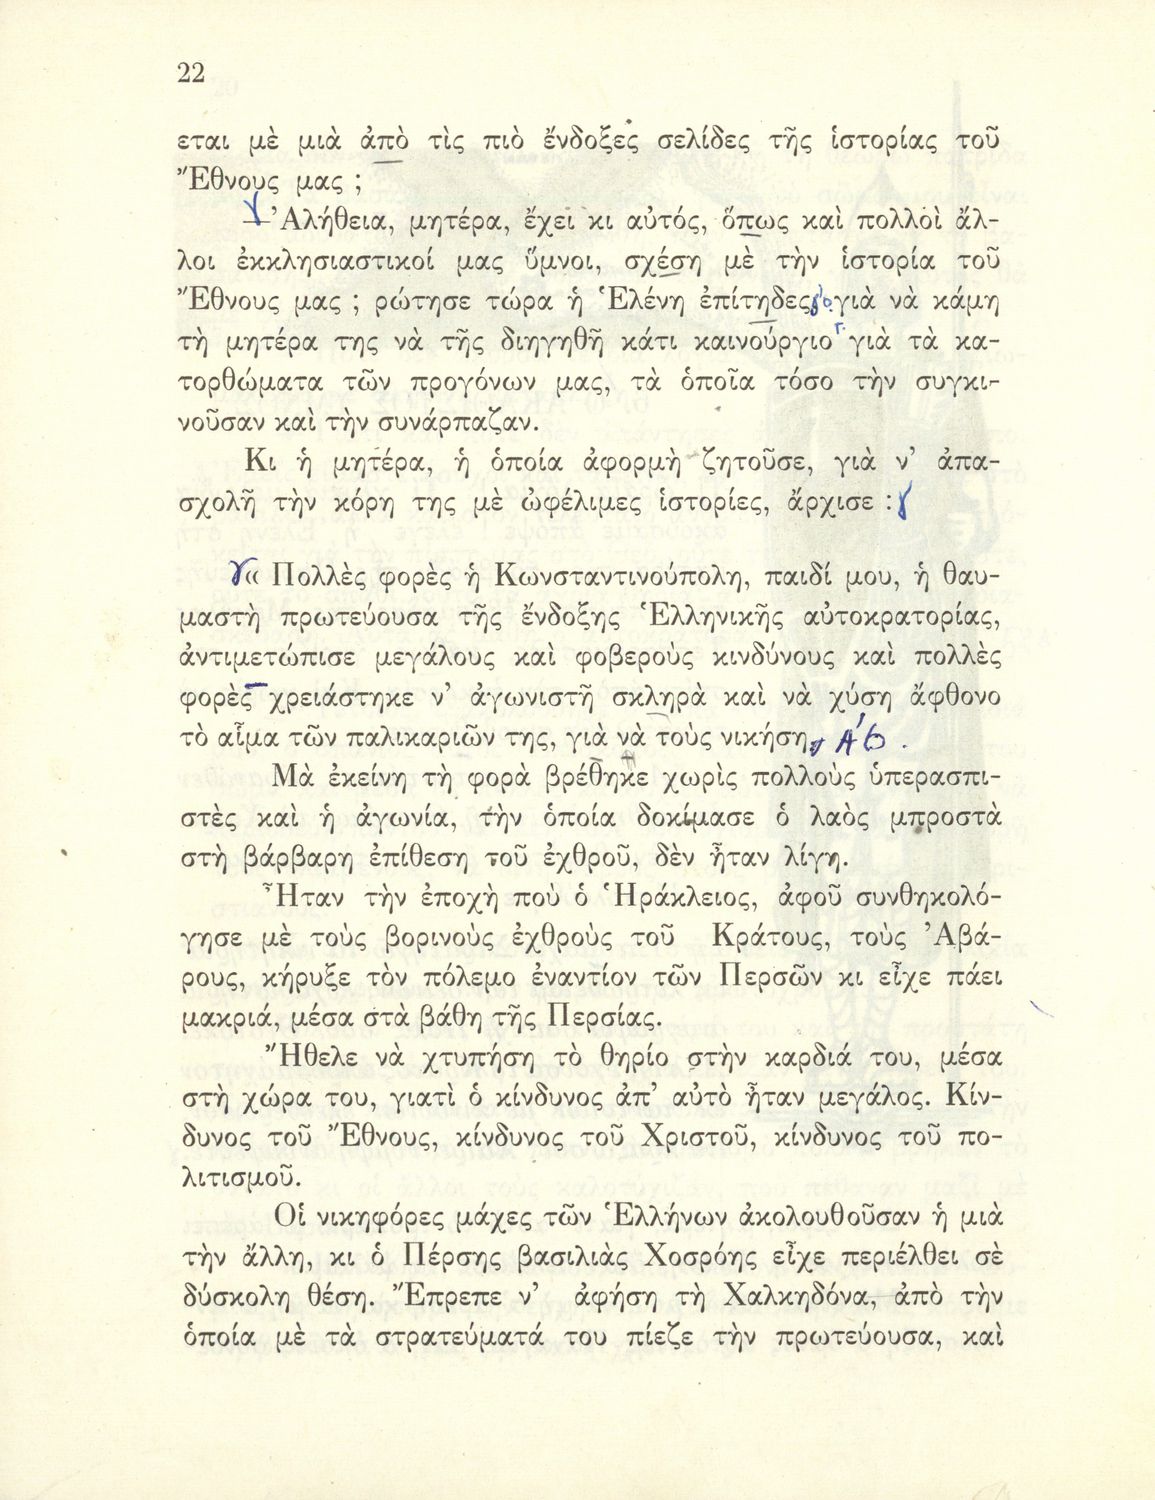 22
εται μὲ μιὰ ἀπὸ τὶς πιὸ ἔνδοξες σελίδες τῆς ἱστορίας τοῦ
Ἔθνους μας ;
—Ἀλήθεια, μητέρα, ἔχει κι αὐτός, ὅπως καὶ πολλοὶ ἄλ-
λοι ἐκκλησιαστικοί μας ὕμνοι, σχέση μὲ τὴν ἱστορία τοῦ
Ἔθνους μας ; ρώτησε τώρα ἡ Ἑλένη ἐπίτηδες γιὰ νὰ κάμη
τὴ μητέρα της νὰ τῆς διηγηθῆ κάτι καινούργιο γιὰ τὰ κα-
τορθώματα τῶν προγόνων μας, τὰ ὁποῖα τόσο τὴν συγκι-
νοῦσαν καὶ τὴν συνάρπαζαν.
Κι ἡ μητέρα, ἡ ὁποία ἀφορμὴ ζητοῦσε, γιὰ ν’ ἀπα-
σχολῆ τὴν κόρη της μὲ ὠφέλιμες ἱστορίες, ἄρχισε :
« Πολλὲς φορὲς ἡ Κωνσταντινούπολη, παιδί μου, ἡ θαυ-
μαστὴ πρωτεύουσα τῆς ἔνδοξης Ἑλληνικῆς αὐτοκρατορίας,
ἀντιμετώπισε μεγάλους καὶ φοβεροὺς κινδύνους καὶ πολλὲς
φορὲς χρειάστηκε ν’ ἀγωνιστῆ σκληρὰ καὶ νὰ χύση ἄφθονο
τὸ αἷμα τῶν παλικαριῶν της, γιὰ νὰ τοὺς νικήση
Μὰ ἐκείνη τὴ φορὰ βρέθηκε χωρὶς πολλοὺς ὑπερασπι-
στὲς καὶ ἡ ἀγωνία, τὴν ὁποία δοκίμασε ὁ λαὸς μπροστὰ
στὴ βάρβαρη ἐπίθεση τοῦ ἐχθροῦ, δὲν ἦταν λίγη.
Ἦταν τὴν ἐποχὴ ποὺ ὁ Ἡράκλειος, ἀφοῦ συνθηκολό-
γησε μὲ τοὺς βορινοὺς ἐχθροὺς τοῦ Κράτους, τοὺς Ἀβά-
ρους, κήρυξε τὸν πόλεμο ἐναντίον τῶν Περσῶν κι εἶχε πάει
μακριά, μέσα στὰ βάθη τῆς Περσίας.
Ἤθελε νὰ χτυπήση τὸ θηρίο στὴν καρδιά του, μέσα
στὴ χώρα του, γιατὶ ὁ κίνδυνος ἀπ’ αὐτὸ ἦταν μεγάλος. Κίν-
δυνος τοῦ Ἔθνους, κίνδυνος τοῦ Χριστοῦ, κίνδυνος τοῦ πο-
λιτισμοῦ.
Οἱ νικηφόρες μάχες τῶν Ἑλλήνων ἀκολουθοῦσαν ἡ μιὰ
τὴν ἄλλη, κι ὁ Πέρσης βασιλιὰς Χοσρόης εἶχε περιέλθει σὲ
δύσκολη θέση. Ἔπρεπε ν’ ἀφήση τὴ Χαλκηδόνα, ἀπὸ τὴν
ὁποία μὲ τὰ στρατεύματά του πίεζε τὴν πρωτεύουσα, καὶ